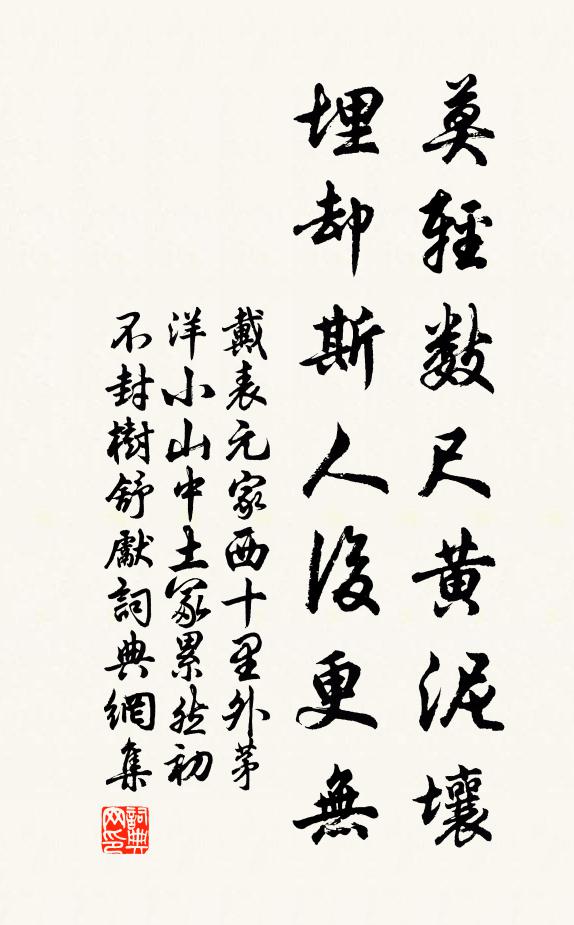 莫輕數尺黃泥壤
埋却斯人後更無
戴表元家西十里外茅
洋小山中土冢累然初
不封樹舒獻詞典網集
詞典
网印